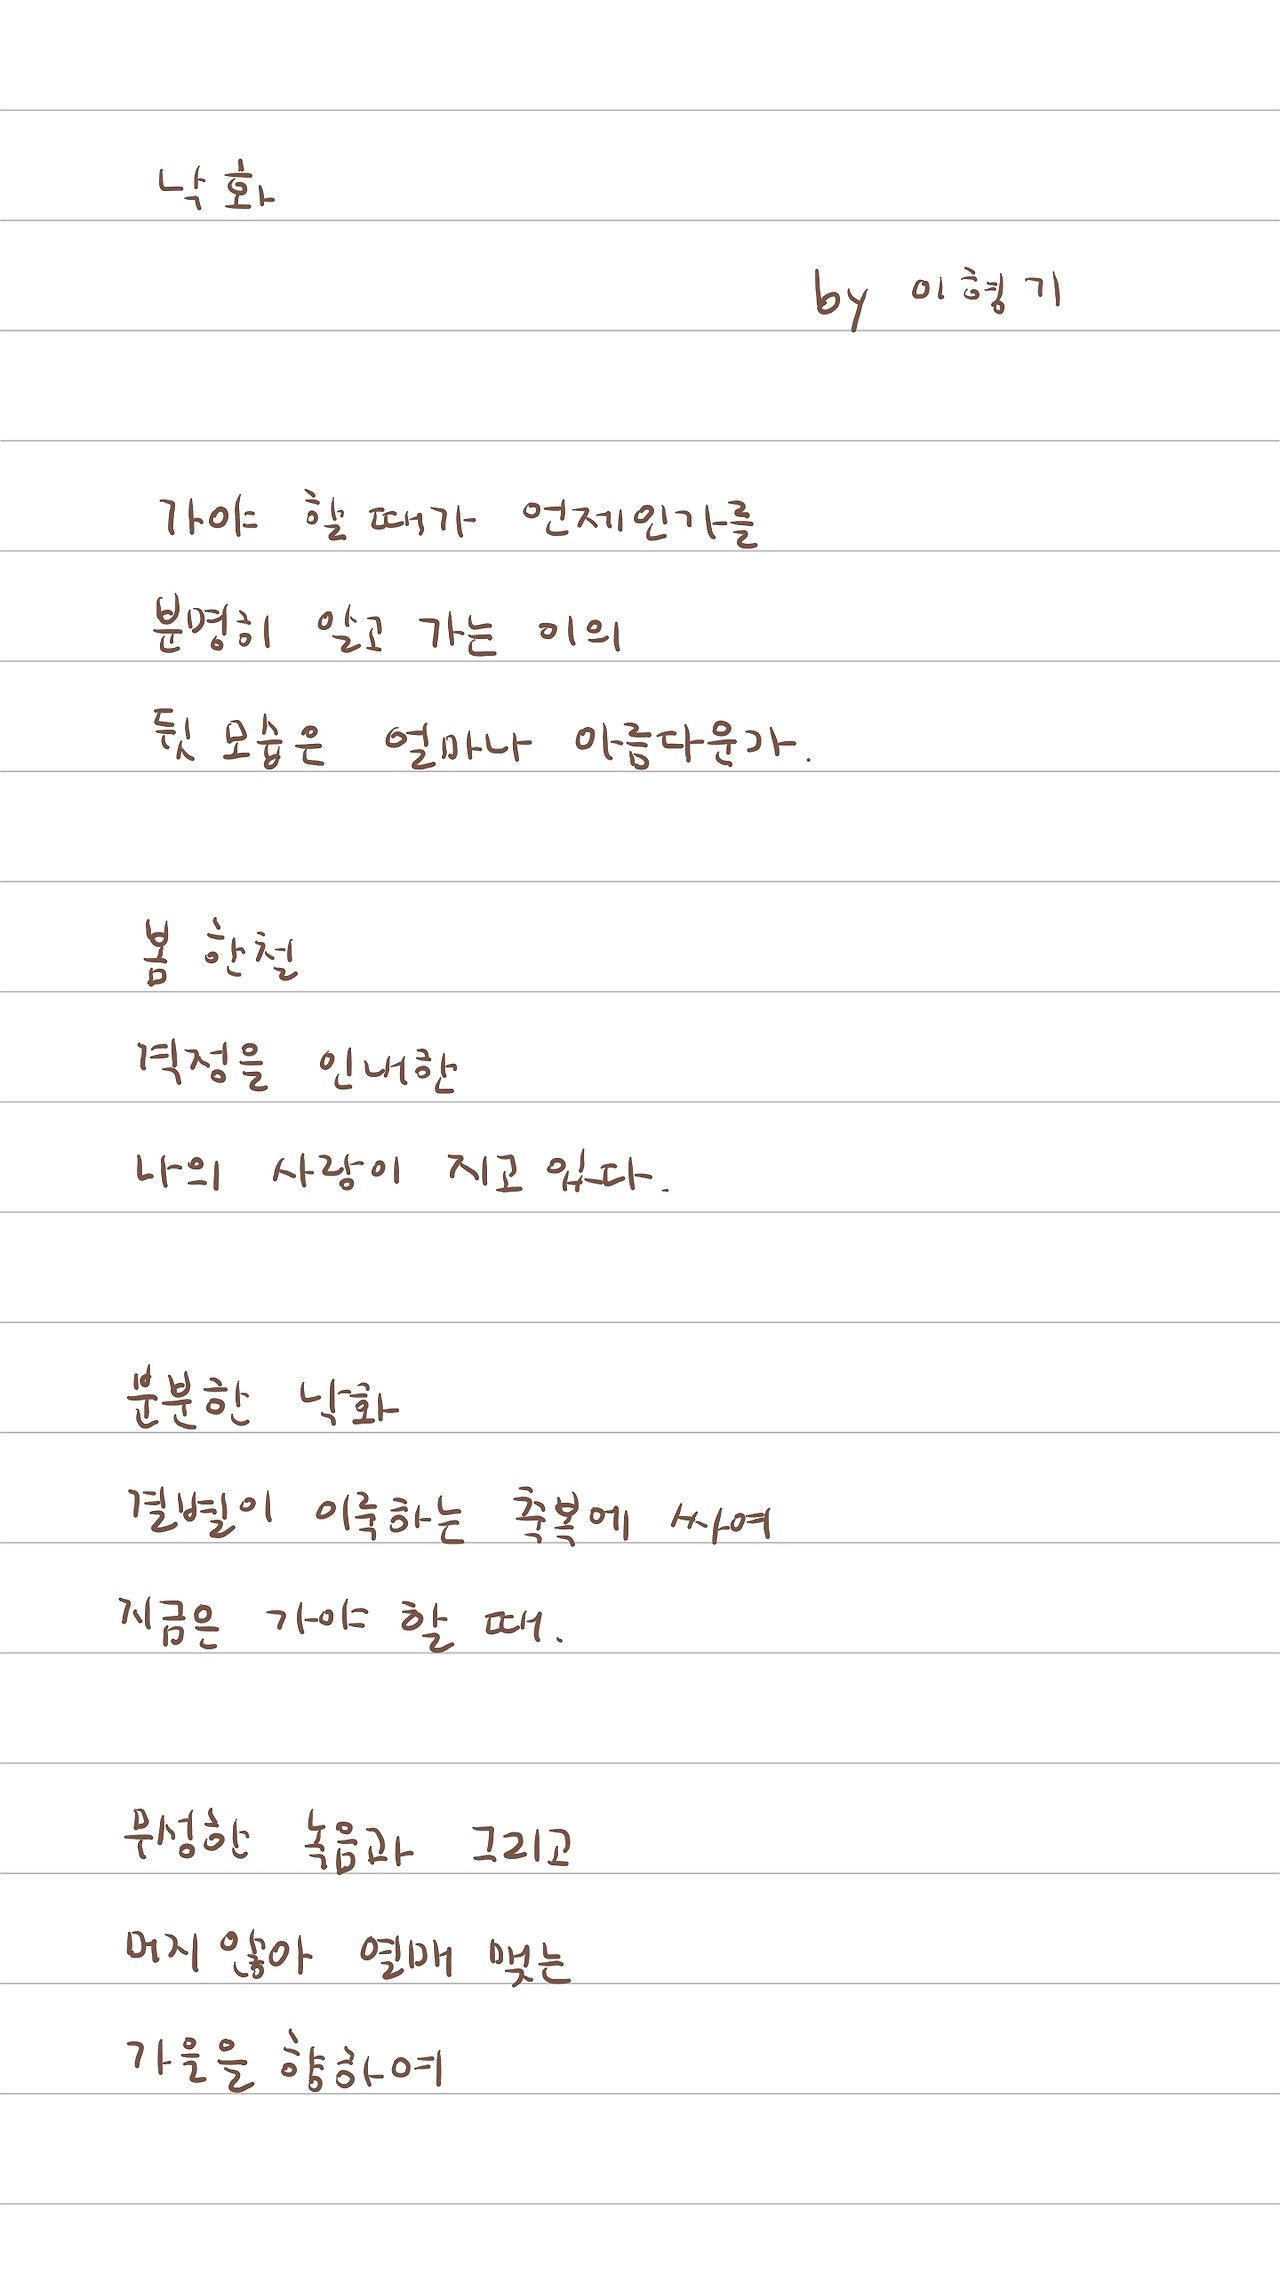 낙화
by 이형기
가야 할 때가 언제인가를
분명히 알고 가는 이의
뒷 모습은 얼마나 아름다운가.
봄 한철
격정을 인내한
나의 사랑이 지고 있다.
분분한 낙화
결별이 이룩하는 축복에 싸여
지금은 가야 할 때.
무성한 녹음과 그리고
머지 않아 열매 맺는
가을을 향하여